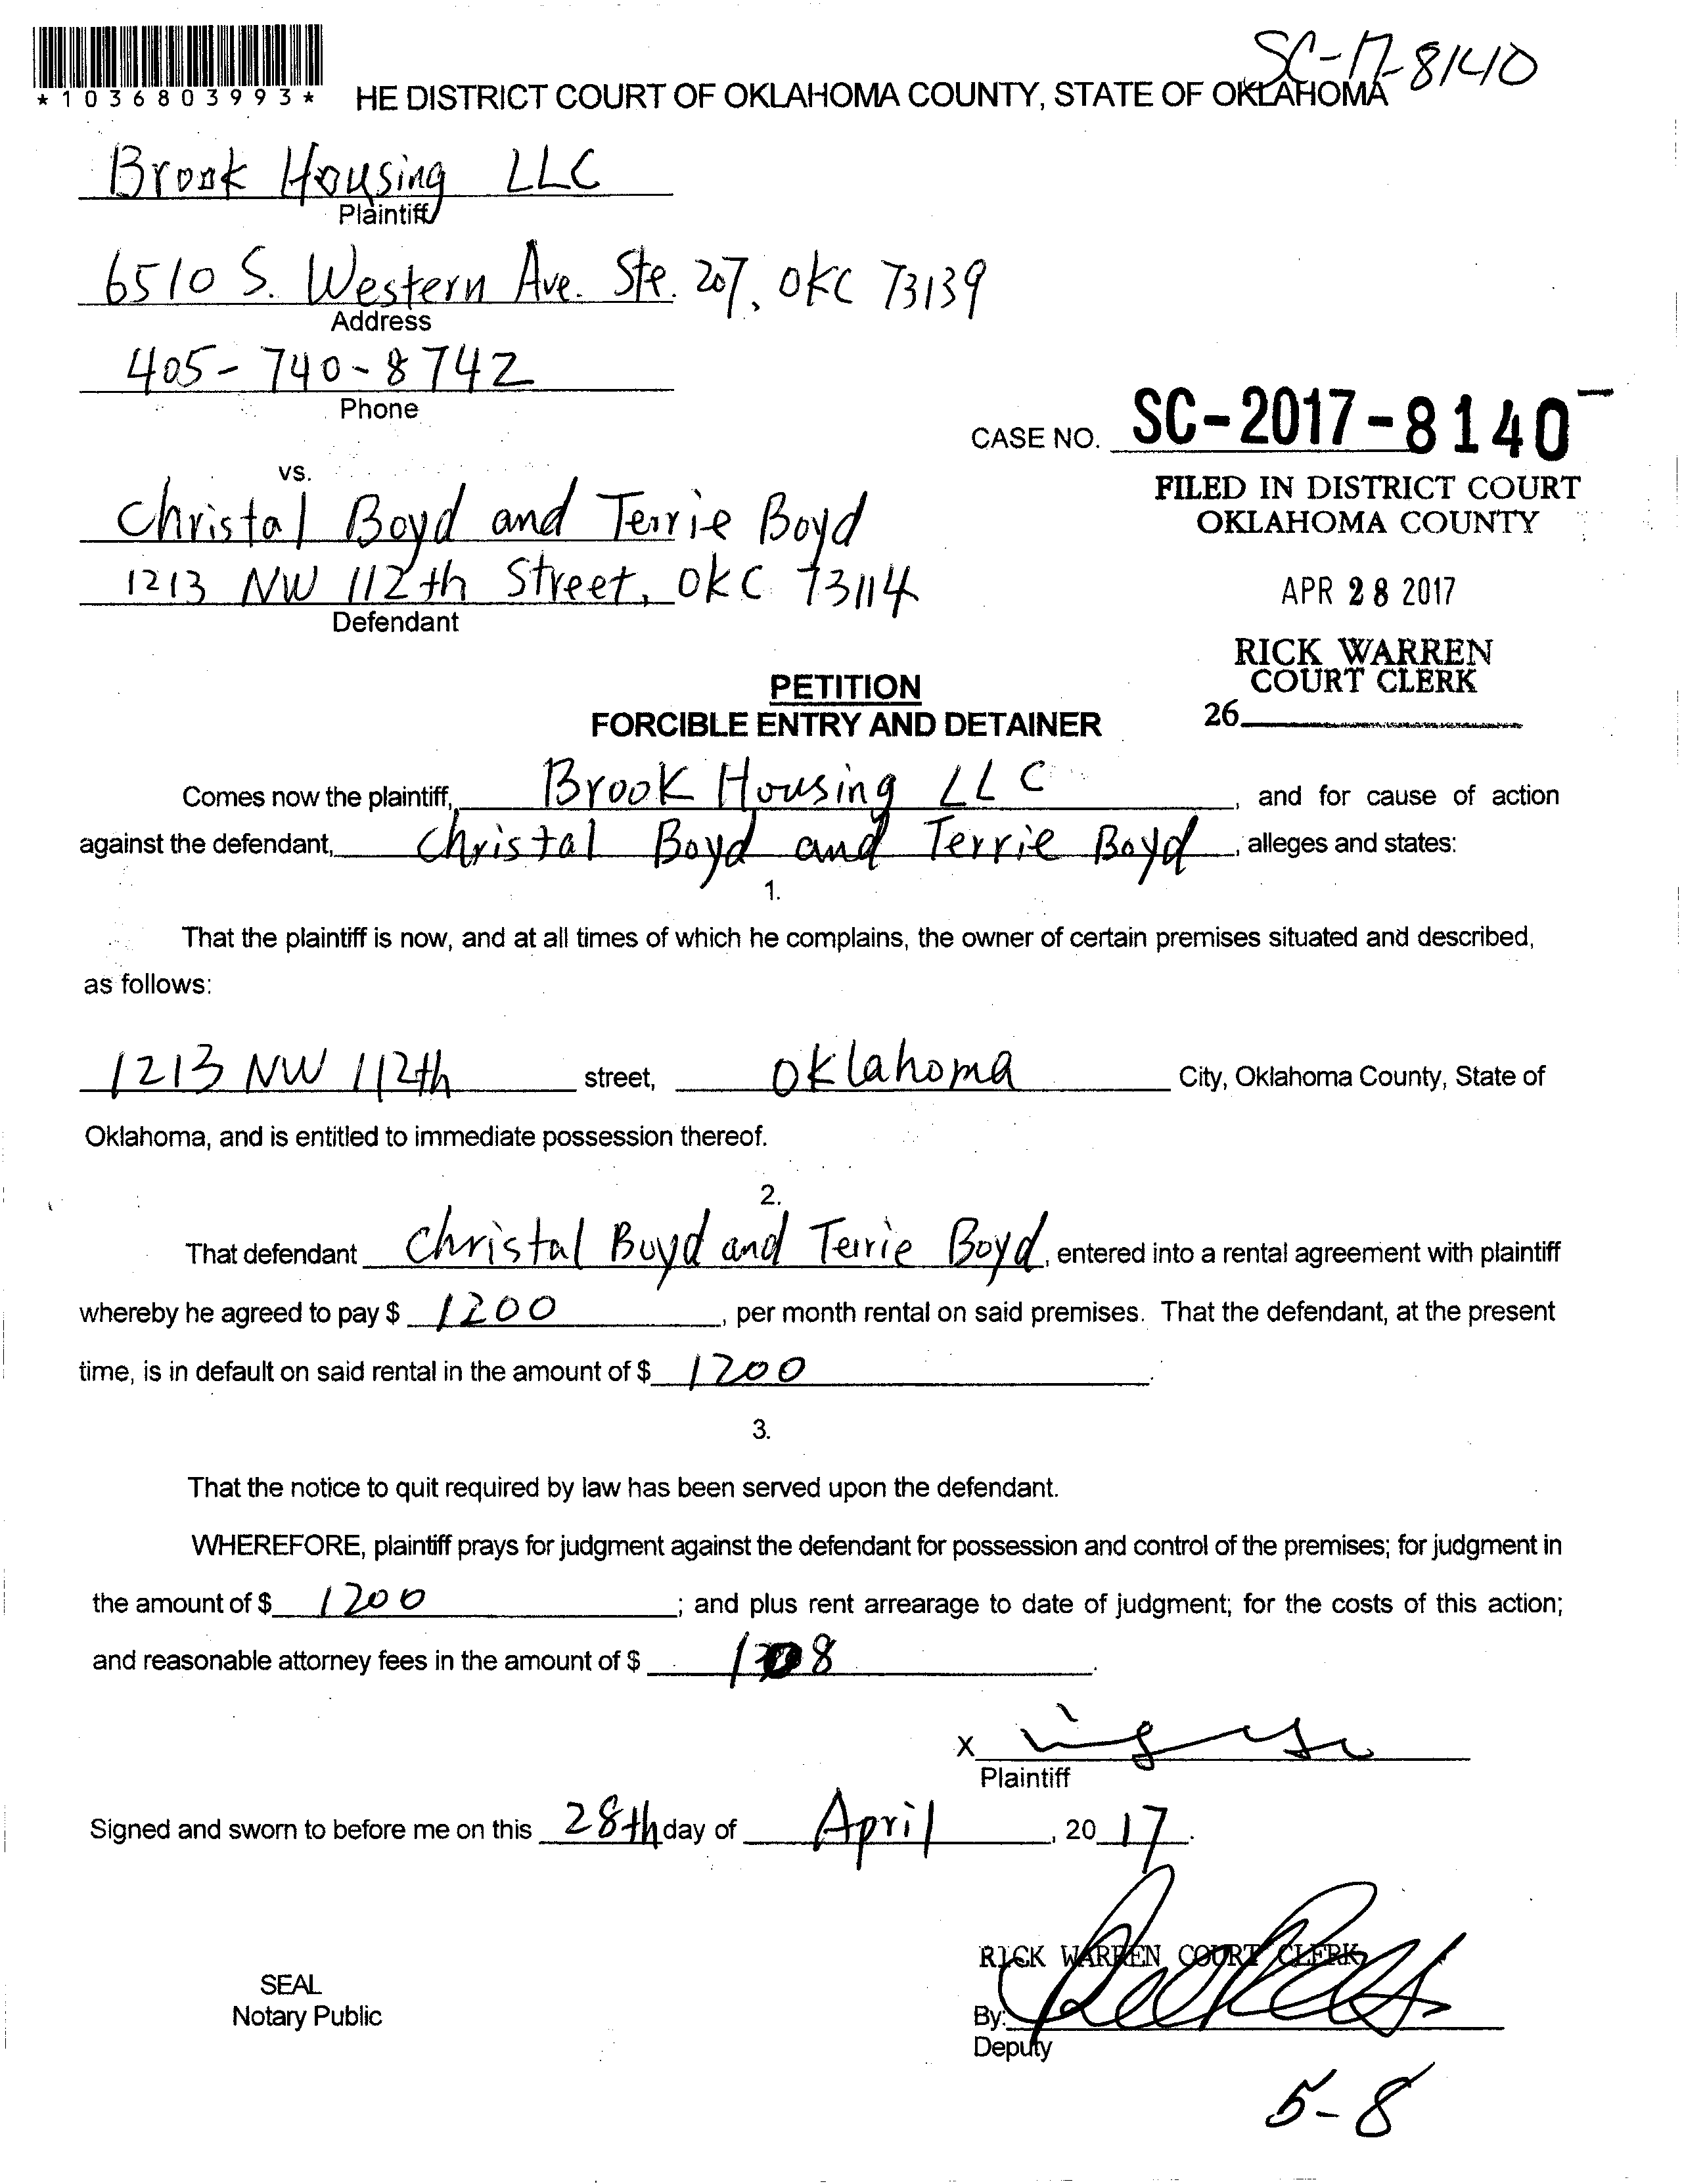 SC-17-8140
*1036803993*
HE DISTRICT COURT OF OKLAHOMA COUNTY, STATE OF OKLAHOMA
Brook Housing LLC
Plaintiff
6510 S. Western Ave. Ste. 207, OKC 73139
Address
405-740-8742
Phone
CASE NO. SC-2017-8140
vs.
FILED IN DISTRICT COURT
OKLAHOMA COUNTY
Christal Boyd and Terrie Boyd
1213 NW 112th Street, OKC 73114
Defendant
APR 28 2017
RICK WARREN
COURT CLERK
26
PETITION
FORCIBLE ENTRY AND DETAINER
Comes now the plaintiff, Brook Housing LLC, and for cause of action
against the defendant, Christal Boyd and Terrie Boyd, alleges and states:
1.
That the plaintiff is now, and at all times of which he complains, the owner of certain premises situated and described,
as follows:
1213 NW 112th street, Oklahoma City, Oklahoma County, State of
Oklahoma, and is entitled to immediate possession thereof.
2.
That defendant Christal Boyd and Terrie Boyd, entered into a rental agreement with plaintiff
whereby he agreed to pay $ 1200, per month rental on said premises. That the defendant, at the present
time, is in default on said rental in the amount of $ 1200.
3.
That the notice to quit required by law has been served upon the defendant.
WHEREFORE, plaintiff prays for judgment against the defendant for possession and control of the premises; for judgment in
the amount of $ 1200; and plus rent arrearage to date of judgment; for the costs of this action;
and reasonable attorney fees in the amount of $
X
Plaintiff
Signed and sworn to before me on this 28th day of April, 2017.
RICK WARREN COURT CLERK
SEAL
Notary Public
By:
Deputy
5-8